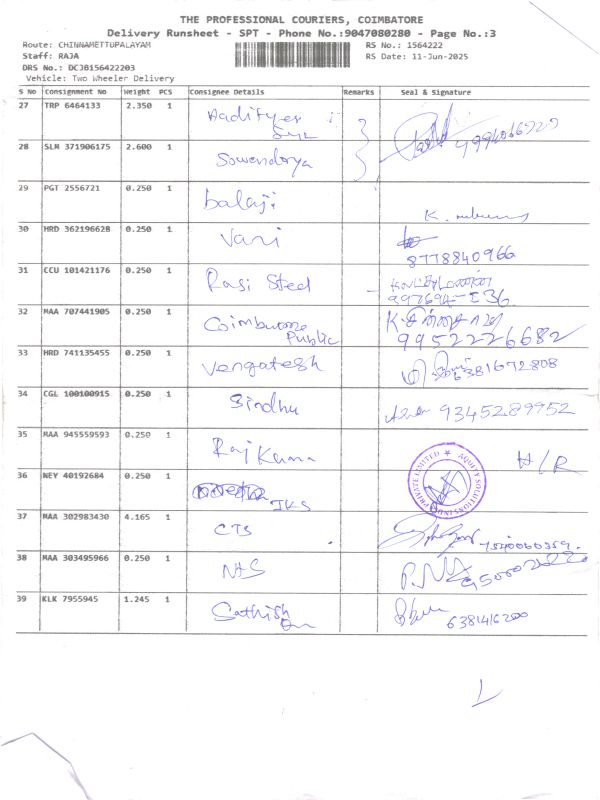 THE PROFESSIONAL COURIERS, COIMBATORE
Delivery Runsheet - SPT - Phone No.:9047080280 - Page No.:3
Route: CHINNAMETTUPALAYAM RS No.: 1564222
Staff: RAJA RS Date: 11-Jun-2025
DRS No.: DCJB156422203
Vehicle: Two Wheeler Delivery
S No Consignment No Weight PCS Consignee Details Remarks Seal & Signature
27 TRP 6464133 2.350 1
28 SLM 371906175 2.600 1 Sowendorya
29 PGT 2556721 0.250 1 balaji
30 HRD 362196628 0.250 1 Vani
8778840966
31 CCU 101421176 0.250 1 Rasi Steel
32 MAA 707441905 0.250 1 Coimbatore
Public 9952226682
33 HRD 741135455 0.250 1 Vengatesh 6381672808
34 CGL 100100915 0.250 1 Sindhu 9345289952
35 MAA 945559593 0.250 1 Raj Kumar H/R
36 NEY 40192684 0.250 1
JKS
AQUITY SOLUTIONS INDIA PRIVATE LIMITED
37 MAA 302983430 4.165 1 CTS
38 MAA 303495966 0.250 1 NAS
39 KLK 7955945 1.245 1 Sathish
6381416200